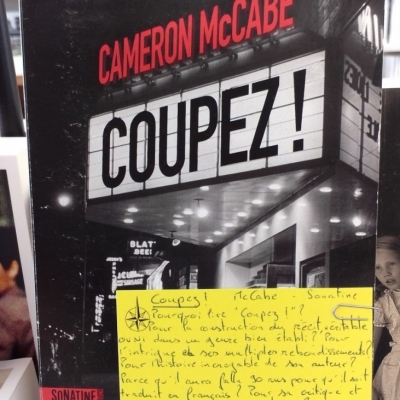 CAMERON McCABE
COUPEZ!
BLATZ
BEER
Coupez! McCabe - Sonatine
Pourquoi lire "Coupez!"?
Pour la construction du récit, véritable
dans un genre bien établi? Pour
l'intrigue et ses multiples rebondissements?
Pour l'histoire incroyable de son auteur?
Parce qu'il aura fallu 30 ans pour qu'il soit
traduit en français? Pour son critique et
SONATINE